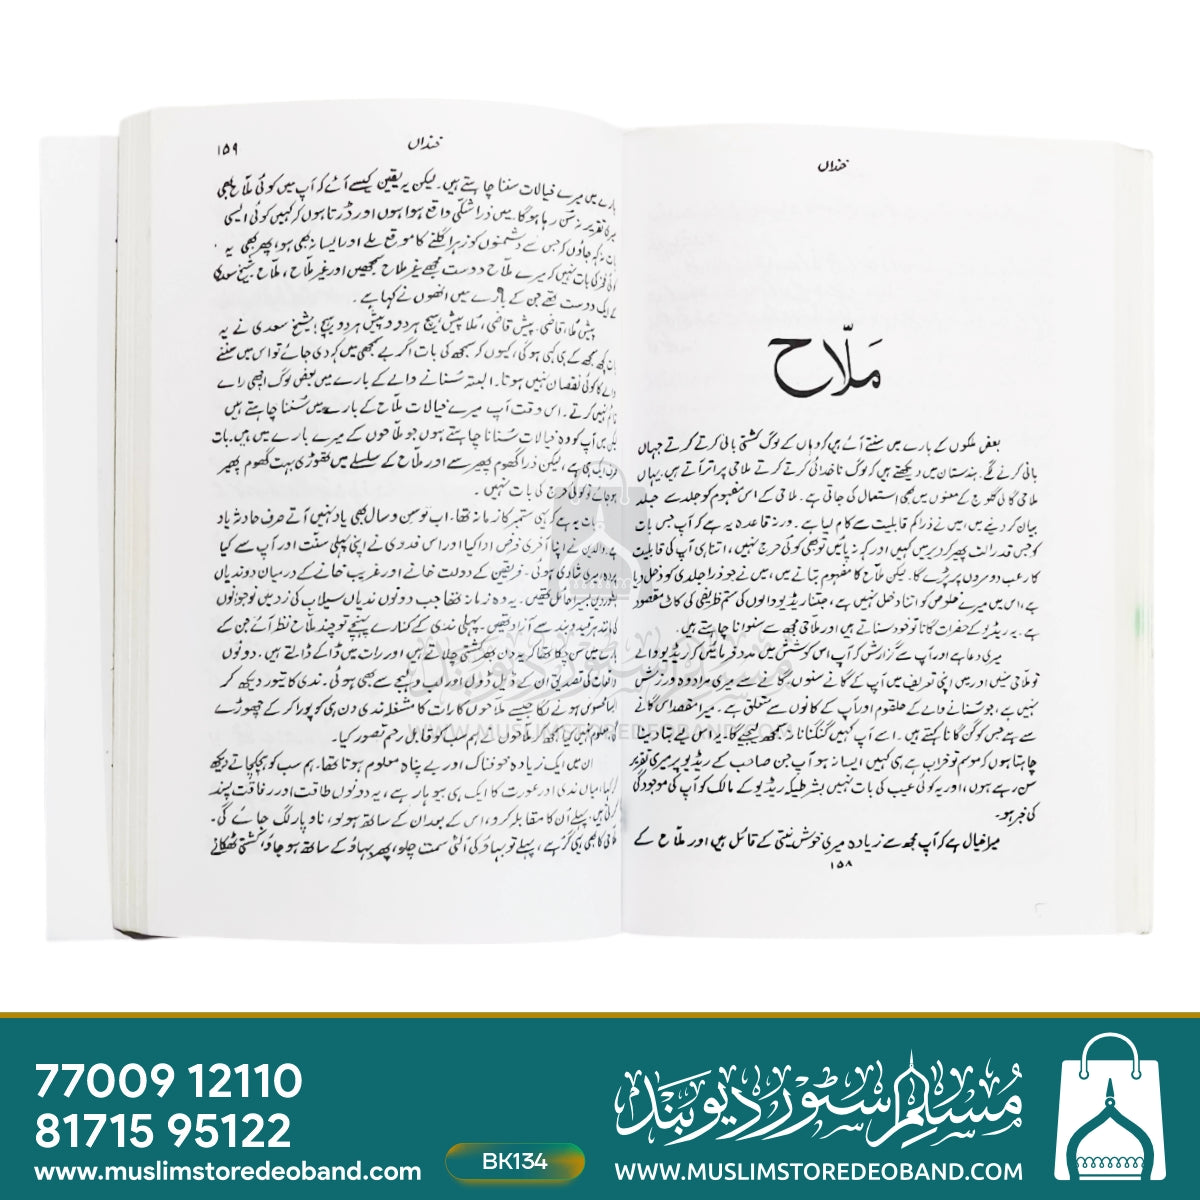 خنداں
مَلّاح
بعض ملکوں کے بارے میں سنتے آئے ہیں کہ وہاں کے لوگ کشتی بانی کرتے کرتے جہاں
بانی کرنے لگے۔ ہندستان میں دیکھتے ہیں کہ لوگ ناخدائی کرتے کرتے ملاحی پر اتر آتے ہیں۔ یہاں
ملاحی گالی گلوج کے معنوں میں بھی استعمال کی جاتی ہے۔ ملاحی کے اس مفہوم کو جلد سے جلد
بیان کر دینے میں، میں نے ذرا کم قابلیت سے کام لیا ہے۔ ورنہ قاعدہ یہ ہے کہ آپ جس بات
کو جس قدر الٹ پھیر کر دیر میں کہیں اور کہہ نہ پائیں تو بھی کوئی حرج نہیں، اتنا ہی آپ کی قابلیت
کا رعب دوسروں پر پڑے گا۔ لیکن ملاح کا مفہوم بتانے میں، میں نے جو ذرا جلدی کو دخل دیا
ہے، اس میں میرے خلوص کو اتنا دخل نہیں ہے، جتنا ریڈیو والوں کی ستم ظریفی کی کاٹ مقصود
ہے۔ یہ ریڈیو کے حضرات گانا تو خود سناتے ہیں اور ملاحی مجھ سے سنوانا چاہتے ہیں۔
میری دعا ہے اور آپ سے گزارش کہ آپ اس کوشش میں مدد فرمائیں کہ ریڈیو والے
تو ملاحی سنیں اور میں اپنی تعریف میں آپ کے گانے سنوں۔ گانے سے میری مراد وہ ورزش
نہیں ہے، جو سنانے والے کے حلقوم اور آپ کے کانوں سے متعلق ہے۔ میرا مقصد اس گانے
سے ہے جس کو گن گانا کہتے ہیں۔ اسے آپ کہیں گنگنانا نہ سمجھ لیجیے گا۔ یہ اس لیے بتا دینا
چاہتا ہوں کہ موسم تو خراب ہے ہی کہیں ایسا نہ ہو آپ جن صاحب کے ریڈیو پر میری تقریر
سن رہے ہوں، اور یہ کوئی عیب کی بات نہیں بشرطیکہ ریڈیو کے مالک کو آپ کی موجودگی
کی خبر ہو۔
میرا خیال ہے کہ آپ مجھ سے زیادہ میری خوش نیتی کے قائل ہیں اور ملاح کے
۱۵۸
خنداں ۱۵۹
بارے میں میرے خیالات سننا چاہتے ہیں۔ لیکن یہ یقین کیسے آئے کہ آپ میں کوئی ملاح بھی
میری تقریر نہ سن رہا ہوگا۔ میں ذرا شکی واقع ہوا ہوں اور ڈرتا ہوں کہ کہیں کوئی ایسی
بات نہ کہہ جاؤں کہ جس سے دشمنوں کو زہر اگلنے کا موقع ملے اور ایسا نہ بھی ہو، پھر بھی یہ
کوئی فخر کی بات نہیں کہ میرے ملاح دوست مجھے غیر ملاح سمجھیں اور غیر ملاح، ملاح۔ شیخ سعدی
کے ایک دوست تھے جن کے بارے میں انھوں نے کہا ہے۔
پیش ملا قاضی، پیش قاضی، ملا پیش ہیچ ہر دو و پیش ہر دو ہیچ! شیخ سعدی نے یہ
بات کچھ سمجھ کے ہی کہی ہوگی، کیوں کہ سمجھ کی بات اگر بے سمجھی میں کہہ دی جائے تو اس میں سننے
والے کا کوئی نقصان نہیں ہوتا۔ البتہ سنانے والے کے بارے میں بعض لوگ اچھی رائے
قائم نہیں کرتے۔ اس وقت آپ میرے خیالات ملاح کے بارے میں سننا چاہتے ہیں
لیکن میں آپ کو وہ خیالات سنانا چاہتے ہوں جو ملاحوں کے میرے بارے میں ہیں۔ بات
تو ایک ہی ہے، لیکن ذرا گھوم پھیر سے اور ملاح کے سلسلے میں تھوڑی بہت گھوم پھیر
ہو جائے تو کوئی حرج کی بات نہیں۔
بات یہ ہے کہ یہی ستمبر کا زمانہ تھا۔ اب تو سن و سال بھی یاد نہیں آتے صرف حادثہ یاد
ہے۔ والدین نے اپنا آخری فرض ادا کیا اور اس فدوی نے اپنی پہلی سنت اور آپ سے کیا
پردہ میری شادی ہوئی۔ فریقین کے دولت خانے اور غریب خانے کے درمیان دو ندیاں
حائل تھیں۔ یہ وہ زمانہ تھا جب دونوں ندیاں سیلاب کی زد میں نوجوانوں
کی مانند ہر قید و بند سے آزاد تھیں۔ پہلی ندی کے کنارے پہنچے تو چند ملاح نظر آئے جن کے
بارے میں سن چکا تھا کہ یہ دن بھر کشتی چلاتے ہیں اور رات میں ڈاکے ڈالتے ہیں۔ دونوں
افعال کی تصدیق ان کے ڈیل ڈول اور لب و لہجے سے بھی ہوئی۔ ندی کا تیور دیکھ کر
ایسا محسوس ہونے لگا جیسے ملاحوں کا رات کا مشغلہ ندی دن ہی کو پورا کر کے چھوڑے
گی۔ معلوم نہیں کیا سمجھ کر ملاحوں نے ہم سب کو قابل رحم تصور کیا۔
ان میں ایک زیادہ خوفناک اور بے پناہ معلوم ہوتا تھا۔ ہم سب کو ہچکچاتے دیکھ
کر کہا، میاں ندی اور عورت کا ایک ہی بیوہار ہے، یہ دونوں طاقت اور رفاقت پسند
کرتی ہیں۔ پہلے اُن کا مقابلہ کرو، اس کے بعد ان کے ساتھ ہو لو، ناؤ پار لگ جائے گی۔
ملاحی کا بھی یہی گر ہے، پہلے تو بہاؤ کی الٹی سمت چلو، پھر بہاؤ کے ساتھ ہو جاؤ، کشتی ٹھکانے
مسلم سٹور دیوبند
WWW.MUSLIMSTOREDEOBAND.COM
77009 12110
81715 95122
www.muslimstoredeoband.com
BK134
مسلم سٹور دیوبند
WWW.MUSLIMSTOREDEOBAND.COM